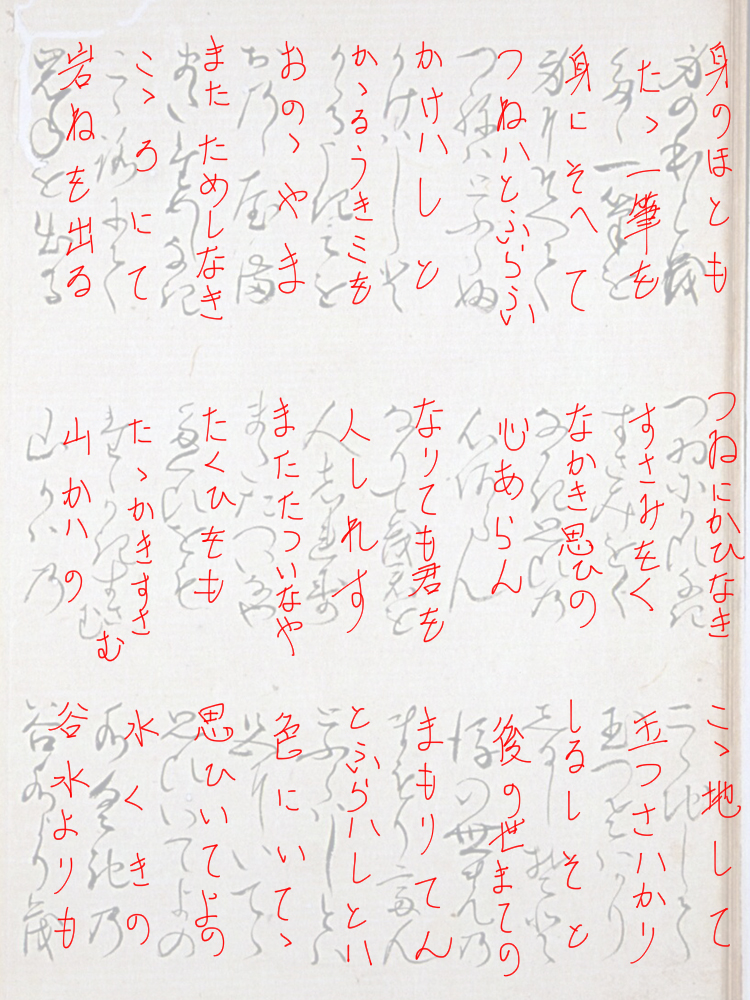 身のほとも つねにかひなき こゝ地して
たゝ一筆を すさみをく 玉つさハかり
身にそへて なかき思ひの しるしそと
つねハとふらふ 心あらん 後の世まての
かけハしと なりても君を まもりてん
かゝるうきミを 人しれす とふらハしとハ
おのゝやま またたついなや 色にいてゝ
またためしなき たくひをも 思ひいてよの
こゝろにて たゝかきすさむ 水くきの
岩ねを出る 山かハの 谷水よりも